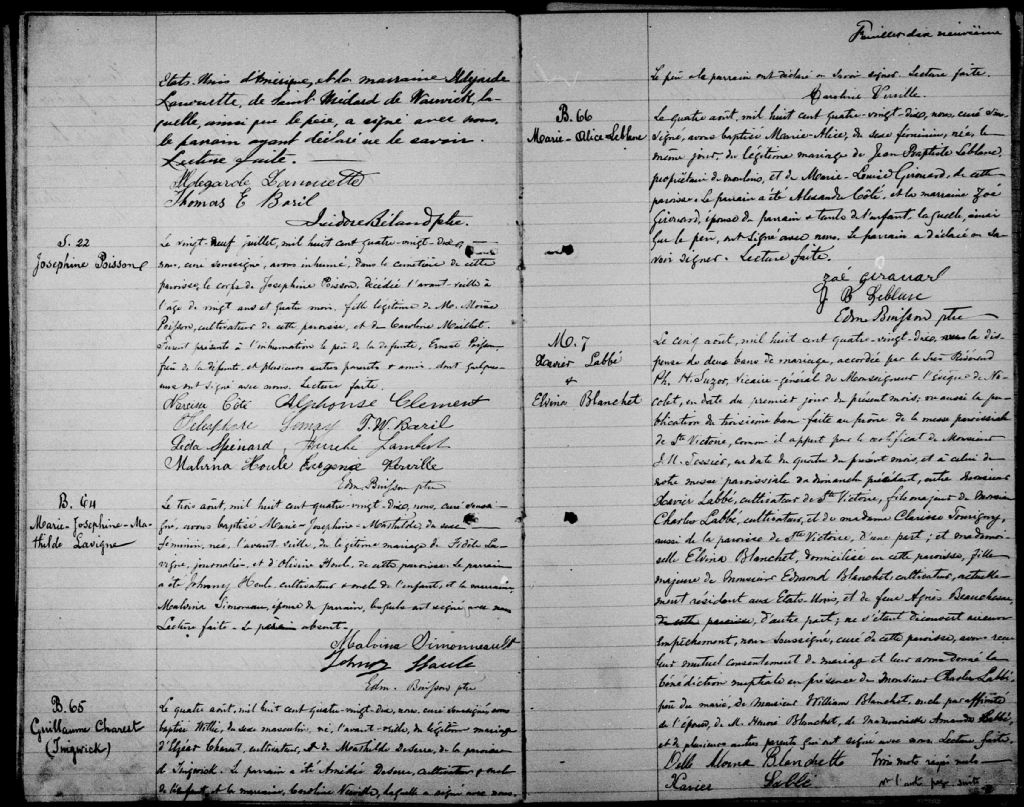 Etats-Unis d'Amérique, et la marraine Aldegarde
Lanouette, de Saint-Médard de Warwick, la-
quelle, ainsi que le père, a signé avec nous,
le parrain ayant déclaré ne le savoir.
Lecture faite. —
Aldegarde Lanouette
Thomas E Baril
Isidore Béland ptre.
S. 22
Josephine Poisson
Le vingt-neuf juillet, mil huit cent quatre-vingt-dix,
nous, curé soussigné, avons inhumé, dans le cimetière de cette
paroisse, le corps de Josephine Poisson, décédée l'avant-veille à
l'âge de vingt ans et quatre mois, fille legitime de Mr. Moïse
Poisson, cultivateur de cette paroisse, et de Caroline Maillot.
Furent présents à l'inhumation le père de la defunte, Ernest Poisson,
frère de la défunte, et plusieurs autres parents & amis dont quelques-
uns ont signé avec nous. Lecture faite.
Narcisse Côté Alphonse Clement
Telesphore T. W. Baril
Leda Spénard Aurelie Lambert
Malvina Houle Eugenie Neuville
Edm. Buisson ptre
B. 64
Marie-Josephine-Ma-
thilde Lavigne
Le trois août, mil huit cent quatre-vingt-dix, nous, curé soussi-
gné, avons baptisé Marie-Josephine-Mathilde, du sexe
féminin, née, l'avant-veille, du legitime mariage de Fidèle La-
vigne, journalier, et d'Olivine Houle, de cette paroisse. Le parrain
a été Johnny Houle, cultivateur & oncle de l'enfant, et la marraine,
Malvina Simoneau, épouse du parrain, laquelle a signé avec nous
Lecture faite. Le père absent.
Malvina Simonneault
Johnny Houle
Edm. Buisson ptre
B. 65
Guillaume Charest
(Tingwick)
Le quatre août, mil huit cent quatre-vingt-dix, nous, curé soussigné, avons
baptisé Willie, du sexe masculin, né, l'avant-veille, du légitime mariage
d'Elzéar Charest, cultivateur, & de Mathilde Deserre, de la paroisse
de Tingwick. Le parrain a été Amédée Deserre, cultivateur & oncle
de l'enfant, et la marraine, Caroline Neuville, laquelle a signé avec nous.
Feuillet dix neuvième
Le père & le parrain ont déclaré ne savoir signer. Lecture faite.
Caroline
B. 66
Marie-Alice Leblanc
Le quatre août, mil huit cent quatre-vingt-dix, nous, curé sous-
signé, avons baptisé Marie-Alice, du sexe feminin, née, le
même jour, du légitime mariage de Jean Baptiste Leblanc,
propriétaire de moulins, et de Marie-Louise Girouard, de cette
paroisse. Le parrain a été Alexandre Côté, et la marraine Zoé
Girouard, épouse du parrain & tante de l'enfant, laquelle, ainsi
que le père, ont signé avec nous. Le parrain a déclaré ne sa-
voir signer. Lecture faite.
Zoé Girouard
J B Leblanc
Edm Buisson ptre
M. 7
Xavier Labbé
&
Elvina Blanchet
Le cinq août, mil huit cent quatre-vingt-dix, vu la dis-
pense de deux bans de mariage, accordée par le Très Révérend
Ph. H. Suzor, vicaire-général de Monseigneur l'évêque de Ni-
colet, en date du premier jour du présent mois; vu aussi la pu-
blication du troisième ban faite au prône de la messe paroissiale
de Ste Victoire, comme il appert par le certificat de Monsieur
J. N. Tessier, en date du quatre du présent mois, et à celui de
notre messe paroissiale du dimanche précédent, entre Monsieur
Xavier Labbé, cultivateur de Ste Victoire, fils majeur de Monsieur
Charles Labbé, cultivateur, et de madame Clarisse Tourigny,
aussi de la paroisse de Ste Victoire, d'une part; et mademoi-
selle Elvina Blanchet, domiciliée en cette paroisse, fille
majeure de Monsieur Edmond Blanchet, cultivateur, actuelle-
ment résident aux Etats-Unis, et de feue Agnès Beauchesne,
de cette paroisse, d'autre part; ne s'étant découvert aucun
empêchement, nous soussigné, curé de cette paroisse, avons reçu
leur mutuel consentement de mariage et leur avons donné la
bénédiction nuptiale en présence de Monsieur Charles Labbé,
père du marié, de Monsieur William Blanchet, oncle par affinité
de l'épouse, de M. Honoré Blanchet, de Mademoiselle Amanda Labbé,
et de plusieurs autres parents qui ont signé avec nous. Lecture faite.
Delle Alvina Blanchette Trois mots rayés nuls.
Xavier Labbé